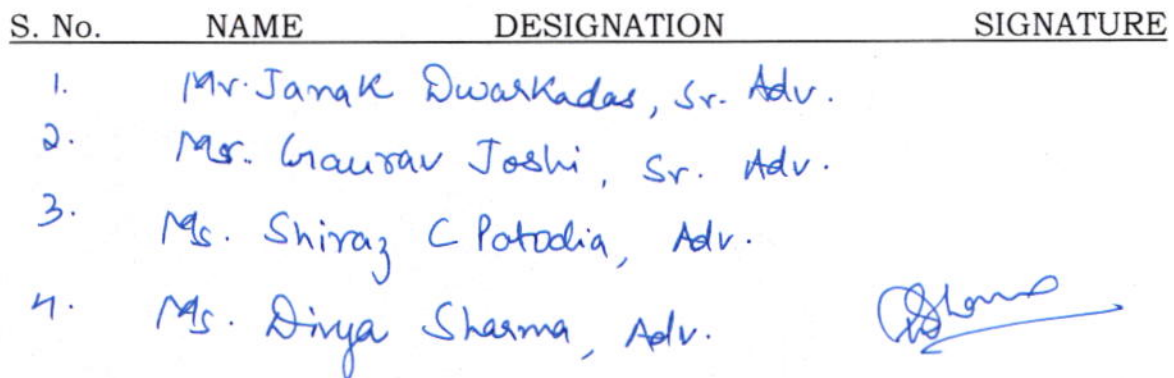 S. No. NAME DESIGNATION SIGNATURE
1. Mr. Janak Dwarkadas, Sr. Adv.
2. Mr. Gaurav Joshi, Sr. Adv.
3. Ms. Shiraz C Patodia, Adv.
4. Ms. Divya Sharma, Adv.